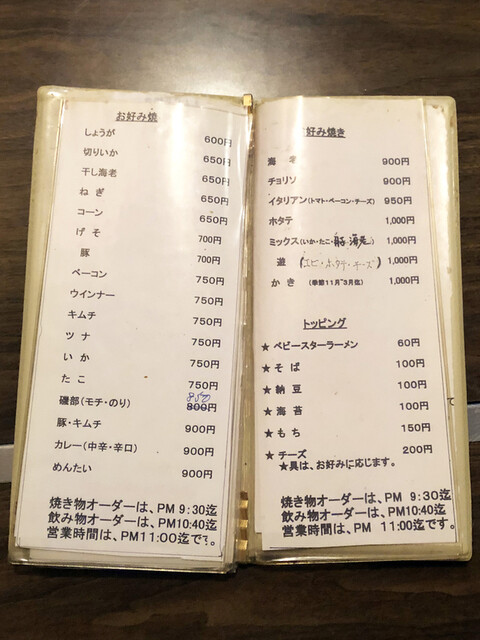 お好み焼
しょうが 600円
切りいか 650円
干し海老 650円
ねぎ 650円
コーン 650円
げそ 700円
豚 700円
ベーコン 750円
ウインナー 750円
キムチ 750円
ツナ 750円
いか 750円
たこ 750円
850
磯部(モチ・のり) 800円
豚・キムチ 900円
カレー(中辛・辛口) 900円
めんたい 900円
焼き物オーダーは、PM 9:30迄
飲み物オーダーは、PM10:40迄
営業時間は、PM11:00迄です。
お好み焼き
海老 900円
チョリソ 900円
イタリアン(トマト・ベーコン・チーズ) 950円
ホタテ 1,000円
ミックス(いか・たこ・ 海老) 1,000円
遊 (エビ・ホタテ・チーズ) 1,000円
かき (季節11月~3月迄) 1,000円
トッピング
★ ベビースターラーメン 60円
★ そば 100円
★ 納豆 100円
★ 海苔 100円
★ もち 150円
★ チーズ 200円
★具は、お好みに応じます。
て
焼き物オーダーは、PM 9:30迄
飲み物オーダーは、PM10:40迄
営業時間は、PM 11:00迄です。